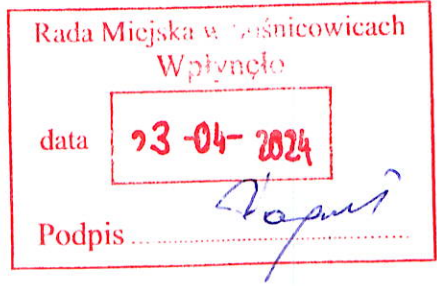 Rada Miejska w Sośnicowicach
Wpłynęło
data 23 -04- 2024
Podpis ...